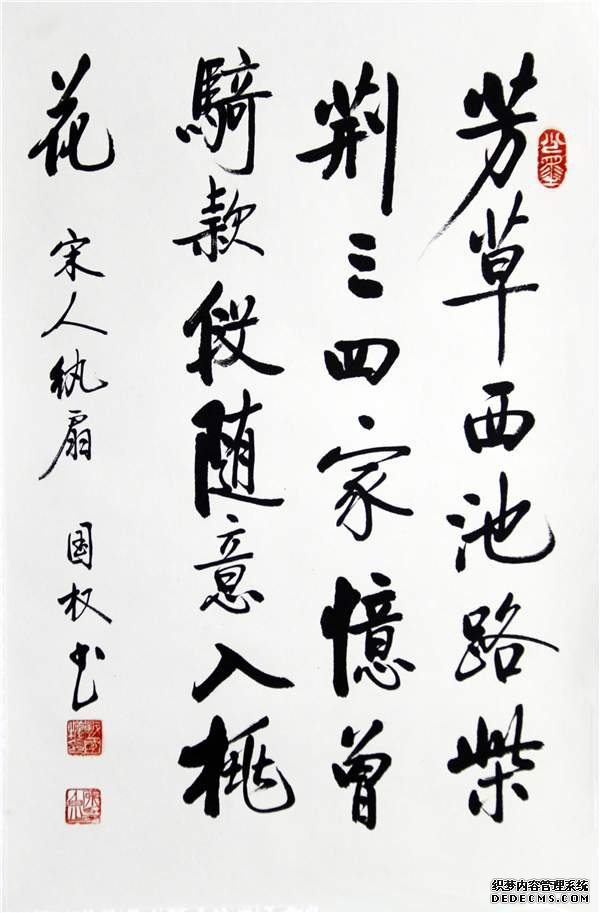 芳草西池路柴
荆三四家憶曾
騎款段随意入桃
花
宋人纨扇 国权书
织梦内容管理系统
DEDECMS.COM